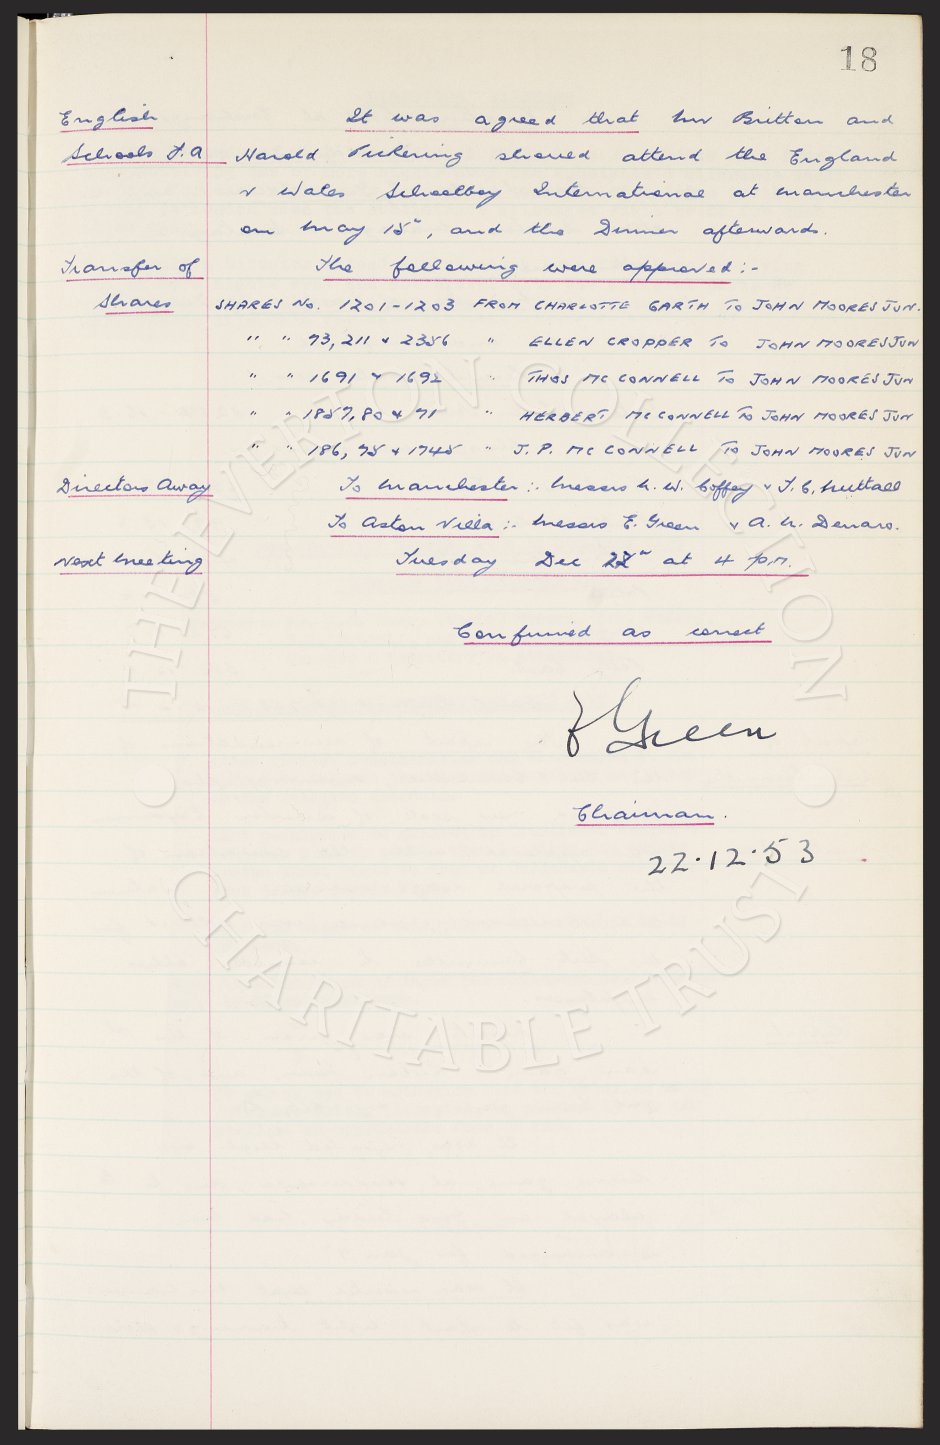 18
English It was agreed that Mr Britton and
Schools F.A Harold Pickering should attend the England
v Wales Schoolboy International at Manchester
on May 15", and the Dinner afterwards.
Transfer of The following were approved:-
Shares SHARES No. 1201-1203 FROM CHARLOTTE GARTH TO JOHN MOORES JUN.
" " 73, 211 & 2356 " ELLEN CROPPER TO JOHN MOORES JUN
" " 1691 & 1692 " THOS MCCONNELL TO JOHN MOORES JUN
" " 1857, 80 & 71 " HERBERT MCCONNELL TO JOHN MOORES JUN
" " 186, 75 & 1745 " J. P. MCCONNELL TO JOHN MOORES JUN
Directors Away To Manchester :- Messrs N. W. Coffey & T. C. Nuttall
To Aston Villa :- Messrs E. Green & A. N. Denaro.
Next Meeting Tuesday Dec 22" at 4 p.m.
Confirmed as correct
E Green
Chairman.
22.12.53
THE EVERTON COLLECTION
CHARITABLE TRUST